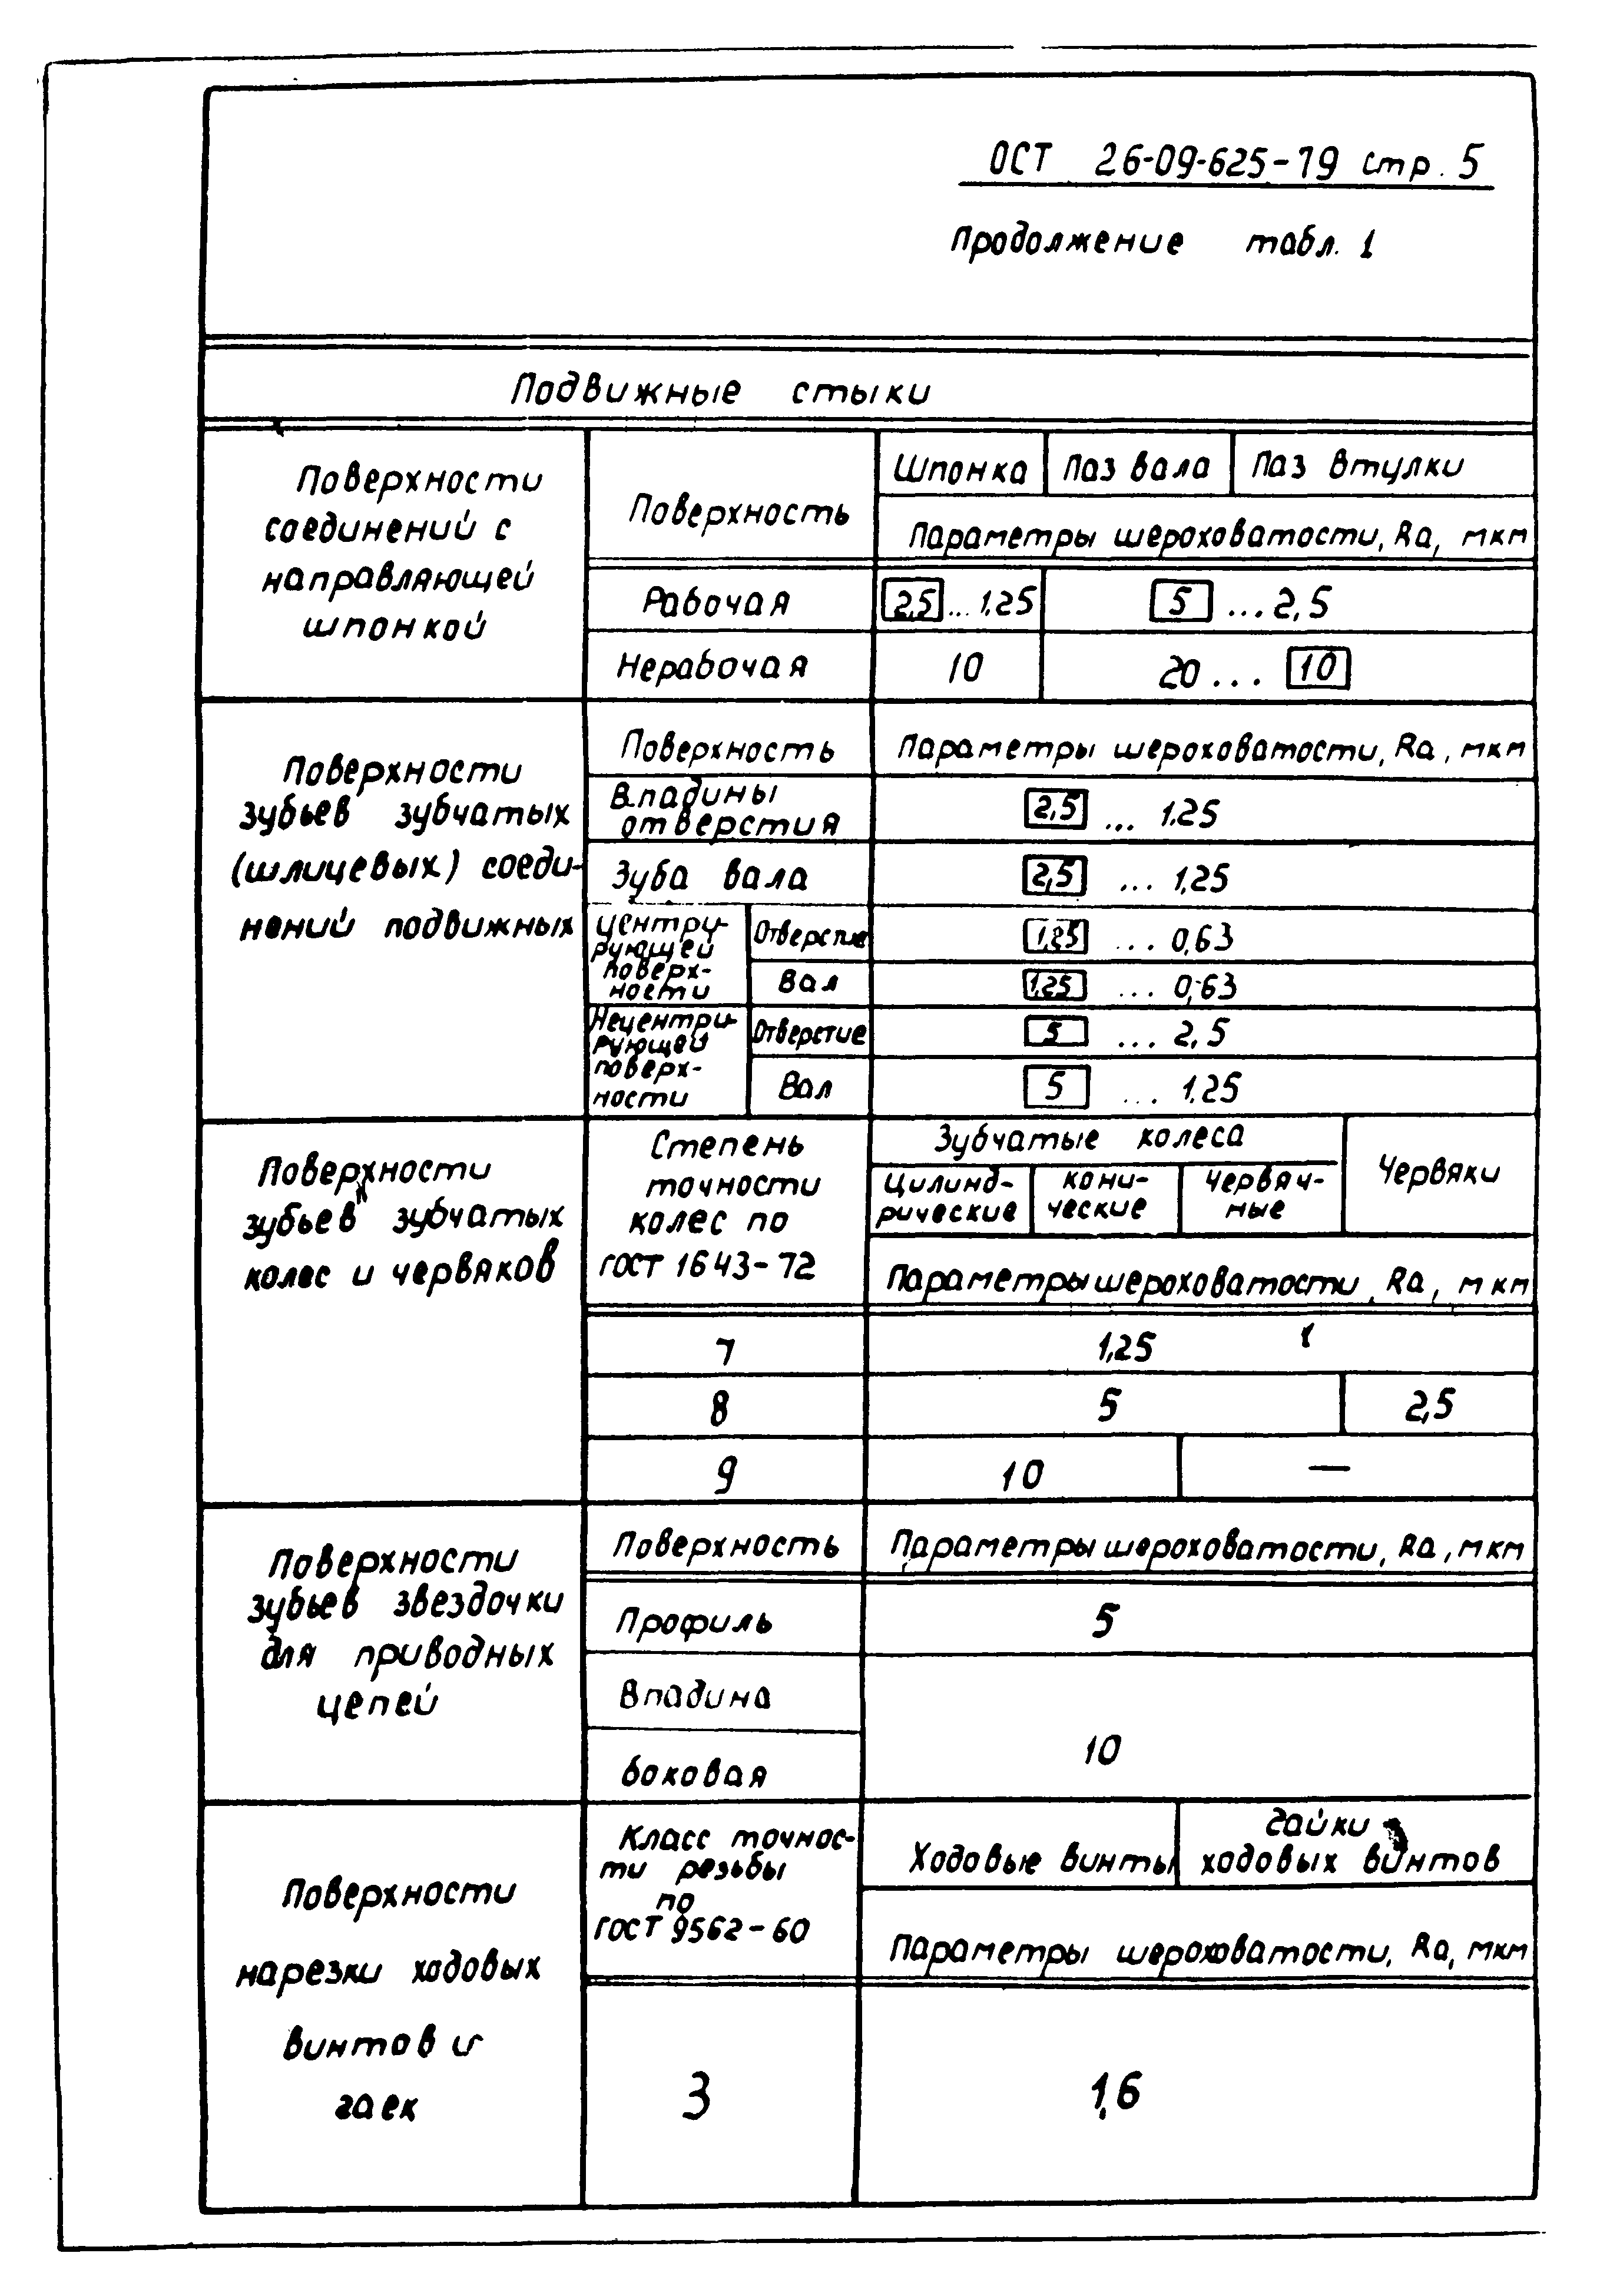 ОСТ 26-09-625-79 стр. 5
Продолжение табл. 1
Подвижные стыки
Поверхности
соединений с
направляющей
шпонкой
Поверхность
Шпонка
Паз вала
Паз втулки
Параметры шероховатости, Ra, мкм
Рабочая
2,5 ... 1,25
5 ... 2,5
Нерабочая
10
20 ... 10
Поверхности
зубьев зубчатых
(шлицевых) соеди-
нений подвижных
Поверхность
Параметры шероховатости, Ra, мкм
Впадины
отверстия
2,5 ... 1,25
Зуба вала
2,5 ... 1,25
центри-
рующей
поверх-
ности
Отверстие
1,25 ... 0,63
Вал
1,25 ... 0,63
Нецентри-
рующей
поверх-
ности
Отверстие
5 ... 2,5
Вал
5 ... 1,25
Поверхности
зубьев зубчатых
колес и червяков
Степень
точности
колес по
ГОСТ 1643-72
Зубчатые колеса
Цилинд-
рические
кони-
ческие
Червяч-
ные
Червяки
Параметры шероховатости, Ra, мкм
7
1,25
8
5
2,5
9
10
—
Поверхности
зубьев звездочки
для приводных
цепей
Поверхность
Параметры шероховатости, Ra, мкм
Профиль
5
Впадина
боковая
10
Поверхности
нарезки ходовых
винтов и
гаек
Класс точнос-
ти резьбы
по
ГОСТ 9562-60
Ходовые винты
гайки
ходовых винтов
Параметры шероховатости, Ra, мкм
3
1,6